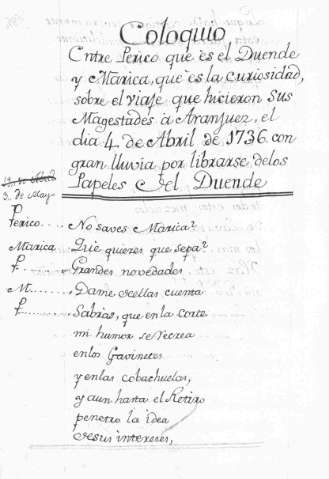 Coloquio
Entre Perico que es el Duende
y Marica, que es la Curiosidad,
sobre el viaje que hicieron Sus
Magestades à Aranjuez, el
dia 4 de Abril de 1736 con
gran lluvia por librarse delos
Papeles del Duende
3. de Mayo
Perico.. No saves Marica?
Marica Què quieres que sepa?
P........ Grandes novedades
M........ Dame de ellas cuenta
P........ Sabràs, que en la Corte
mi humor se recrea
en los Gavinetes
y en las cobachuelas,
y aun hasta el Retiro
penetro la idea
de sus intereses,